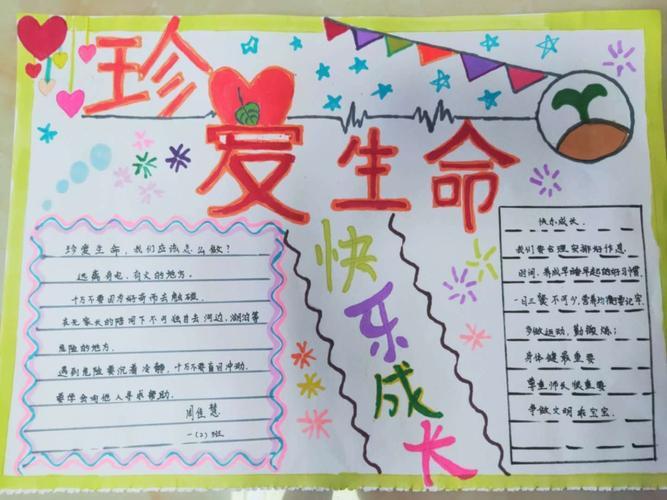 珍爱生命
快乐成长
珍爱生命，我们应该怎么做？
远离有电、有火的地方。
千万不要因为好奇而去触碰。
在无家长的陪同下不可独自去河边、湖泊等
危险的地方。
遇到危险要沉着冷静，千万不要盲目冲动。
要学会向他人寻求帮助。
周佳慧
一（2）班
快乐成长。
我们要合理安排好作息
时间，养成早睡早起的好习惯，
一日三餐不可少，营养均衡要记牢
多做运动，勤锻炼；
身体健最重要
尊重师长很重要
争做文明乖宝宝。